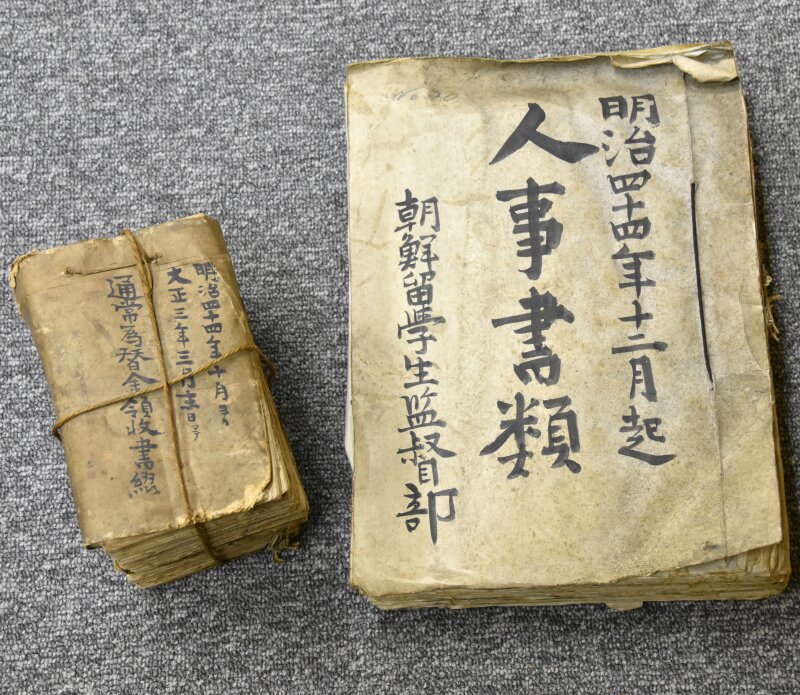 明治四十四年十二月起
人事書類
朝鮮留学生監督部
明治四十四年十月ヨリ
大正三年三月末日マデ
通常為替金領収書綴